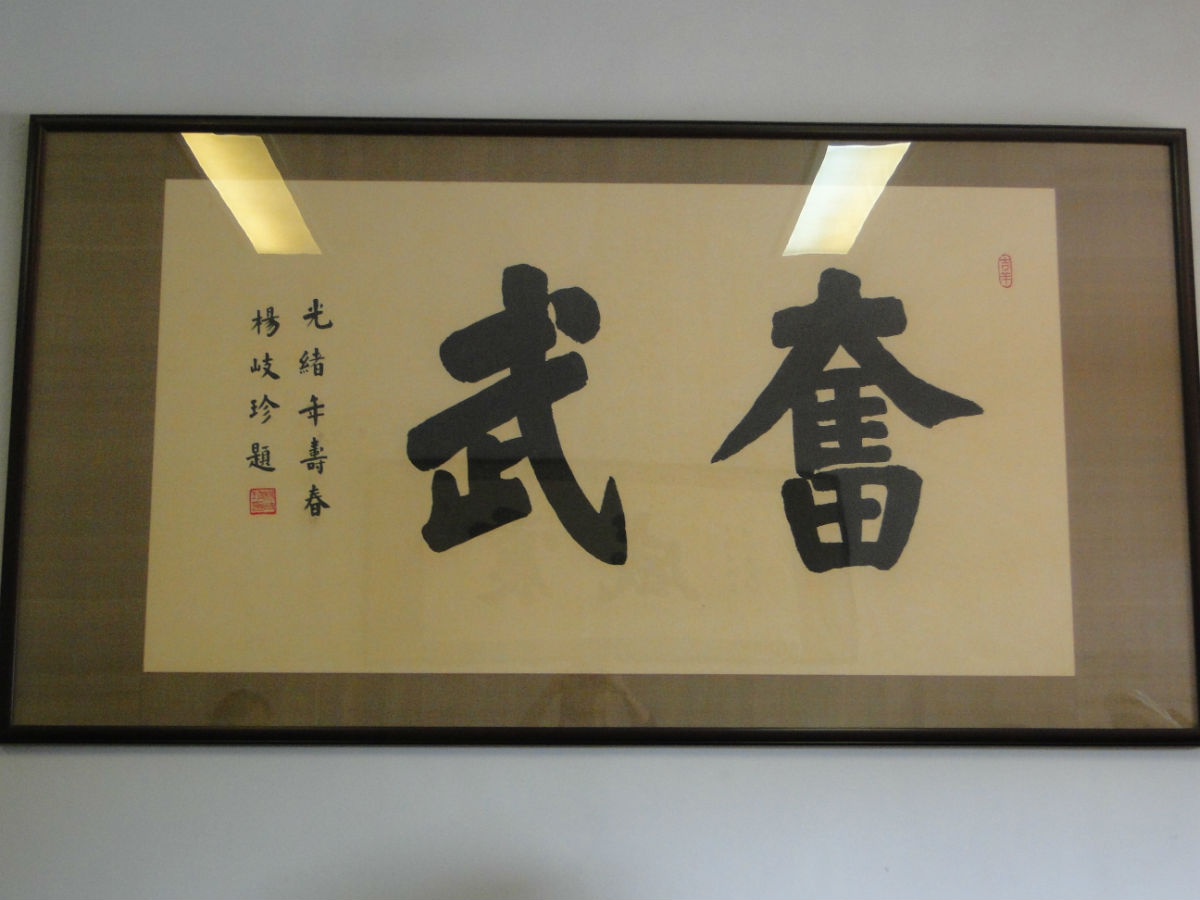 奮武
光緒年壽春
楊岐珍題